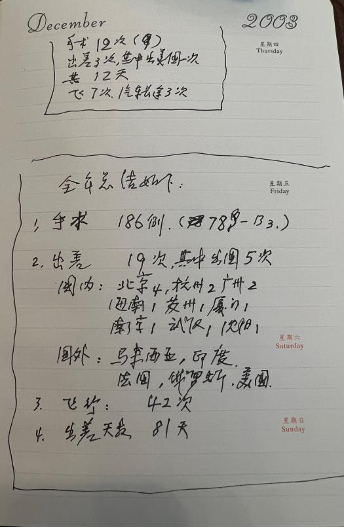 December 2003
手术 12次
星期四
Thursday
出差3次,其中出美国一次
共 12天
飞7次.汽车长途3次
全年总结如下:
星期五
Friday
1. 手术 186例.
2. 出差 19次,其中出国5次
国内: 北京4,杭州2 广州2
海南1 苏州1 厦门1
南京1 武汉1 沈阳1
星期六
Saturday
国外: 马来西亚,印度
法国,俄罗斯.美国
3. 飞行: 42次
4. 出差天数 81天
星期日
Sunday